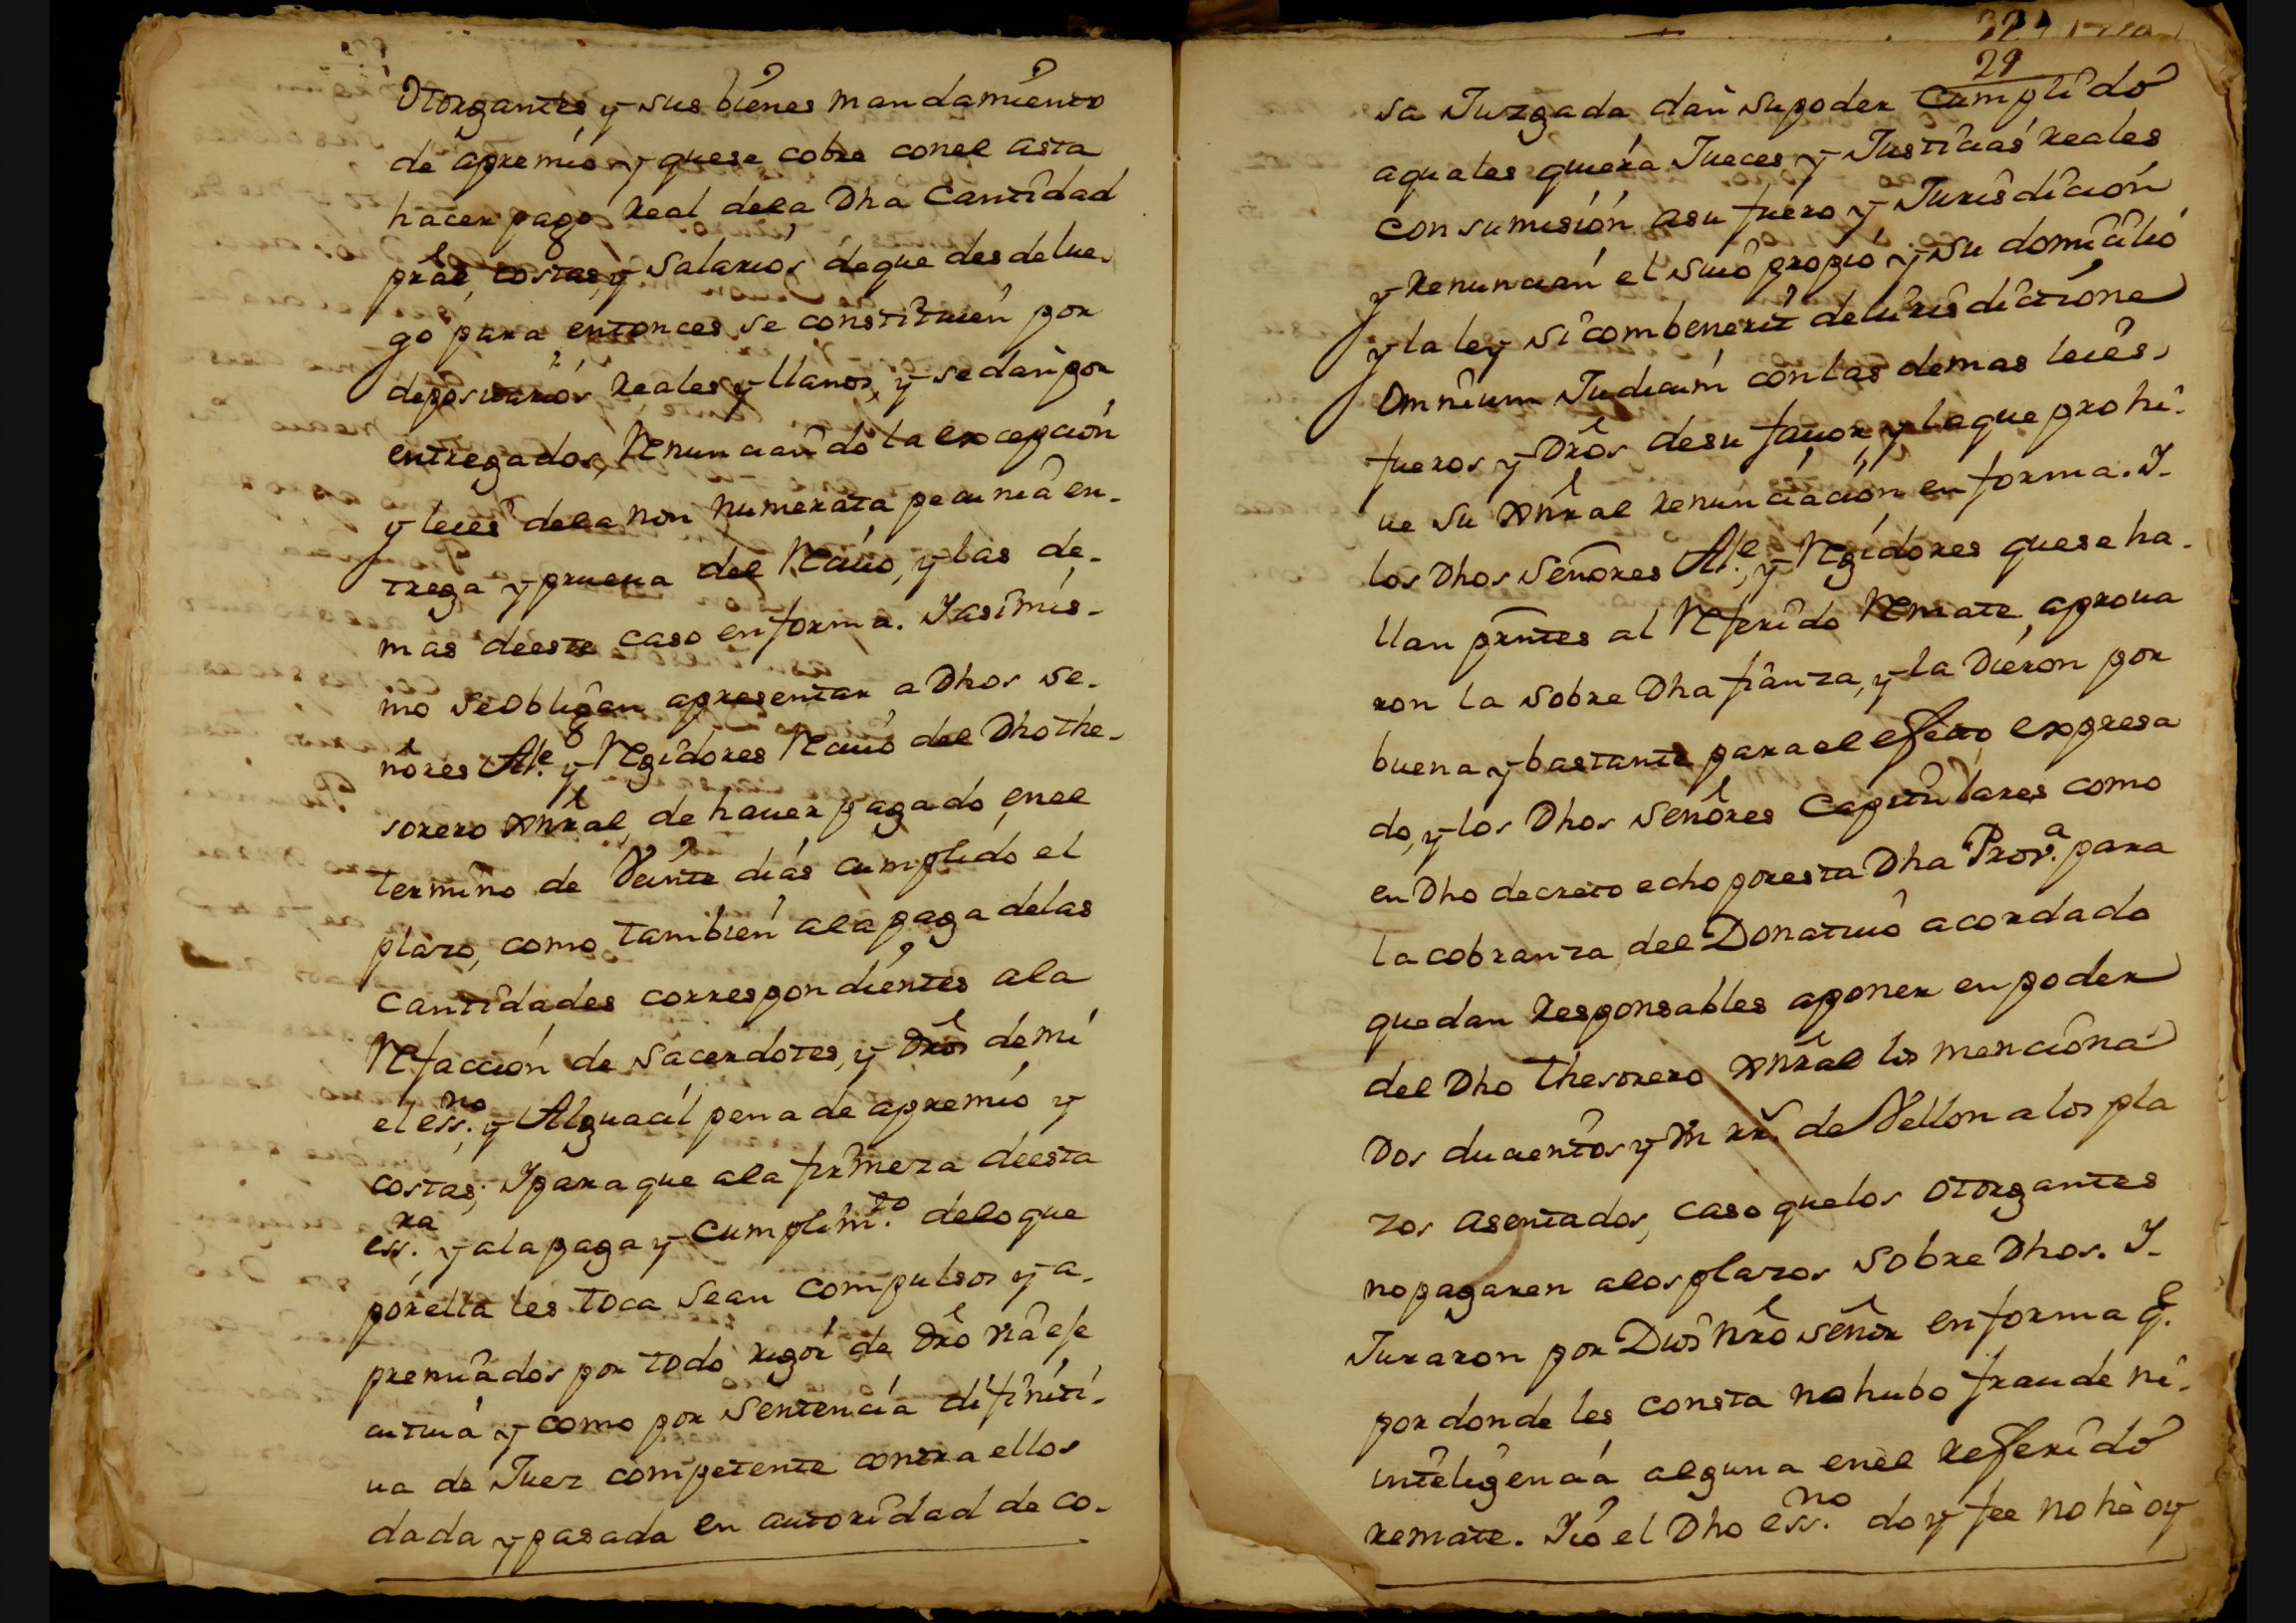 Otorgantes y sus bienes mandamiento
de apremio y quese cobre conel asta
hacer pago Real dela Dha Cantidad
pral, costas, y Salarios deque desdelue-
go para entonces se constituien por
depositarios Reales y llanos, y sedan por
entregados, Renunciando la excepcion
y leies dela non numerata pecunia en-
trega y prueua del Reciuo, y las de-
mas deeste caso enforma. Y asimis-
mo seobligan apresentar a Dhos se-
ñores Ale. y Regidores Reciuo del Dho the-
sorero Xnral, de hauer pagado, enel
termino de Veinte dias cumplido el
plazo, como tambien ala paga delas
Cantidades correspondientes ala
Refaccion de Sacerdotes, y Dros de mi
el essno. y Alguacil pena de apremio y
costas; Y para que ala firmeza deesta
essra. y ala paga y Cumplimto. deloque
porella les toca sean compulsos y a-
premiados por todo rigor de Dro via eje
cutiua y como por Sentencia difiniti-
ua de Juez competente contra ellos
dada y pasada en autoridad de co-
29
sa Juzgada dan supoder Cumplido
aquales quiera Jueces y Justicias Reales
con sumision asu fuero y Jurisdicion
y Renuncian el suio propio y su domicilio
y la ley si combenerit deiurisdictione
Omnium Judicum con las demas leies,
fueros y Dros desu fauor, y laque prohi-
ue su Xnral Renunciacion enforma. Y-
los Dhos Señores Ale. y Regidores quese ha-
llan prntes al Referido Remate, aproua
ron la sobre Dha fianza, y la Dieron por
buena y bastante para el efecto expresa
do, y los Dhos Señores Capitulares como
en Dho decreto echo poresta Dha Prova. para
la cobranza del Donatiuo acordado
quedan Responsables aponer en poder
del Dho Thesorero Xnral los menciona
Dos ducientos y m rr.s de Vellon a los pla
zos asentados, caso quelos otorgantes
nopagaren alosplazos Sobre Dhos. Y-
Juraron por Dios Nro Señor enforma q.e
por donde les consta no hubo fraude ni-
inteligencia alguna enel Referido
remate. Yio el Dho essno. doy fee no hè oy